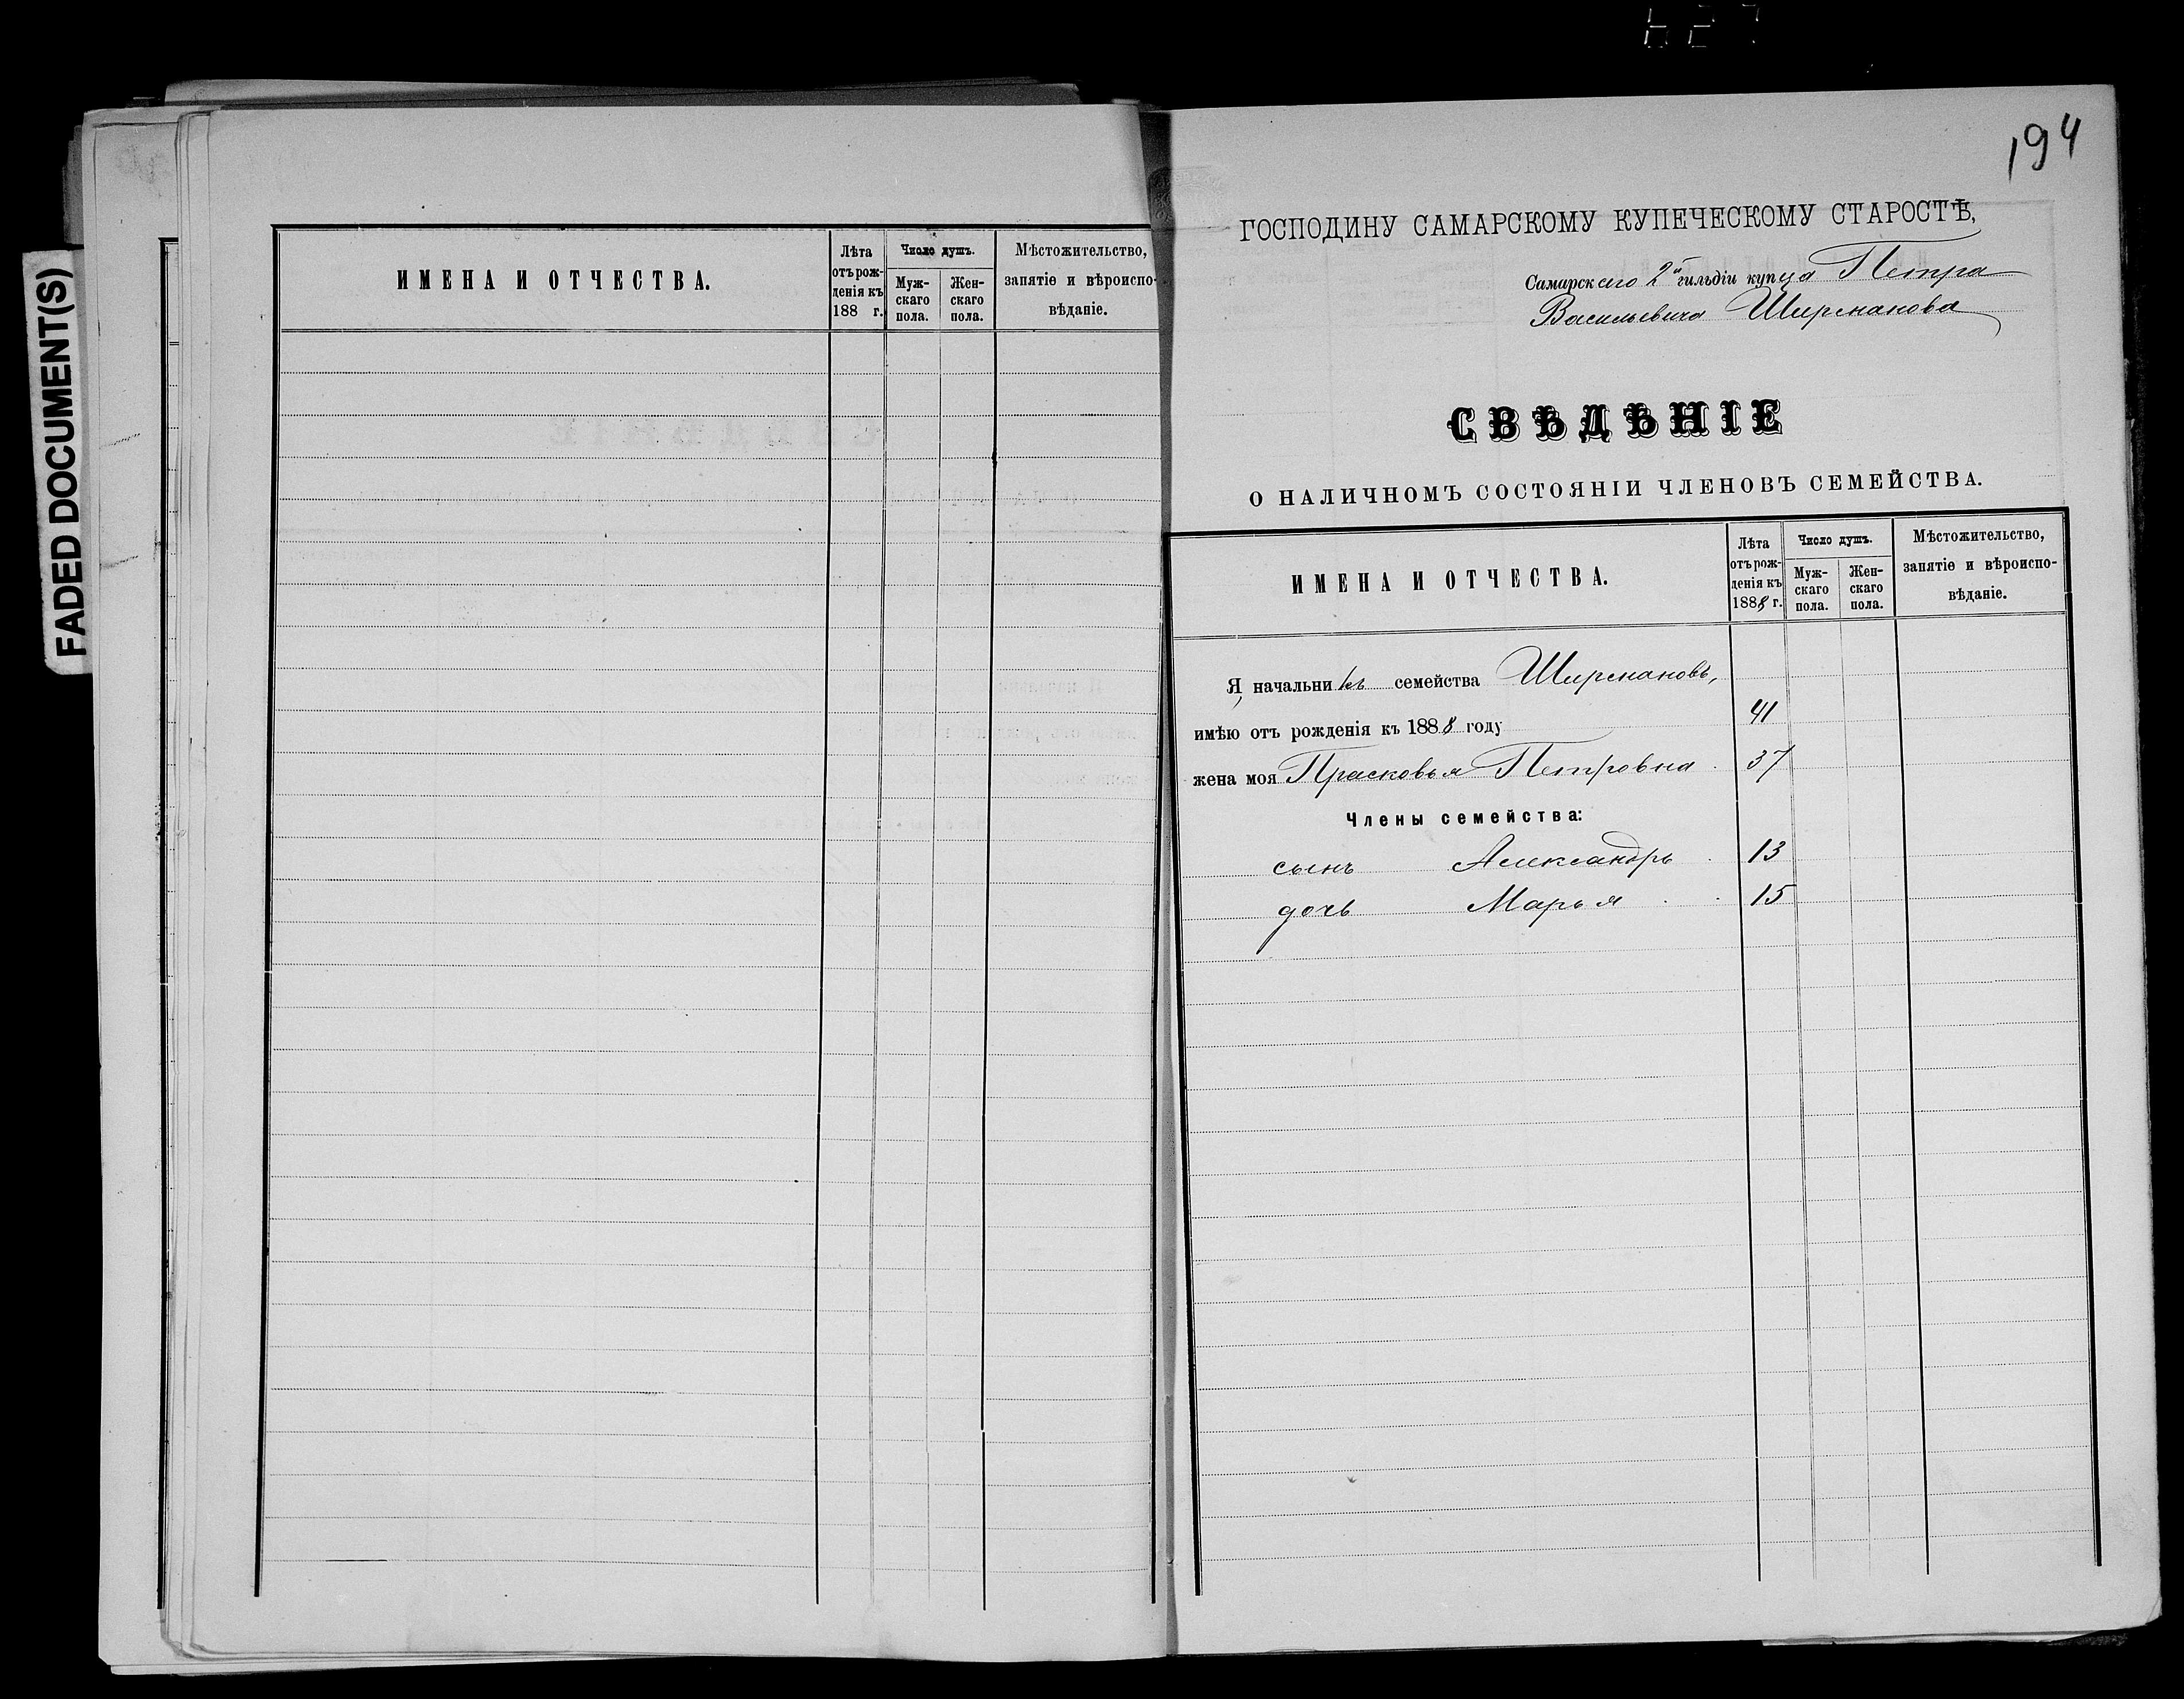 FADED DOCUMENT(S)
ИМЕНА И ОТЧЕСТВА.
Лѣта отъ рожденія къ 188 г.
Число душъ.
Мужскаго пола.
Женскаго пола.
Мѣстожительство, занятіе и вѣроисповѣданіе.
194
ГОСПОДИНУ САМАРСКОМУ КУПЕЧЕСКОМУ СТАРОСТѢ,
Самарскаго 2й гильдіи купца Петра
Васильевича Ширманова
СВѢДѢНІЕ
О НАЛИЧНОМЪ СОСТОЯНІИ ЧЛЕНОВЪ СЕМЕЙСТВА.
ИМЕНА И ОТЧЕСТВА.
Лѣта отъ рожденія къ 1888 г.
Число душъ.
Мужскаго пола.
Женскаго пола.
Мѣстожительство, занятіе и вѣроисповѣданіе.
Я, начальникъ семейства Ширмановъ,
имѣю отъ рожденія къ 1888 году 41
жена моя Прасковья Петровна 37
Члены семейства:
сынъ Александръ 13
дочь Марья 15